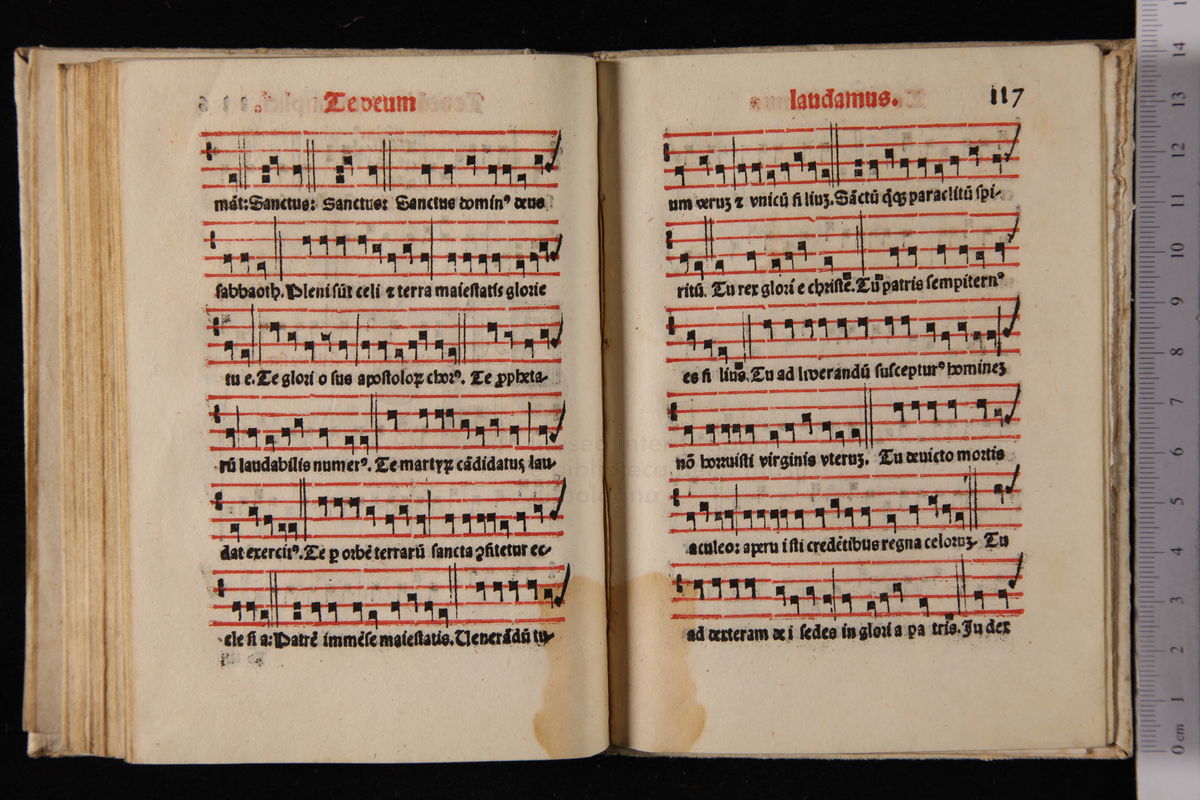 Te deum
mãt: Sanctus: Sanctus: Sanctus dominꝰ deus
sabbaoth. Pleni sũt celi ⁊ terra maiestatis glorie
tu e. Te glori o sus apostoloꝝ chorꝰ. Te ꝓpheta-
rũ laudabilis numerꝰ. Te martyꝝ cãdidatus lau-
dat exercitꝰ. Te ꝑ orbẽ terrarũ sancta ꝯfitetur ec-
cle si a: Patrẽ immẽse maiestatis. Venerãdũ tu-
laudamus.
117
um veruʒ ⁊ vnicũ fi liuʒ. Sãctũ q̃qʒ paraclitũ spi-
ritũ. Tu rex glori e christe. Tu patris sempiternꝰ
es fi lius. Tu ad liverandũ suscepturꝰ hominez
nõ horruisti virginis vteruʒ. Tu deuicto mortis
aculeo: aperu i sti credẽtibus regna celoruʒ. Tu
ad dexteram de i sedes in glori a pa tris. Ju dex